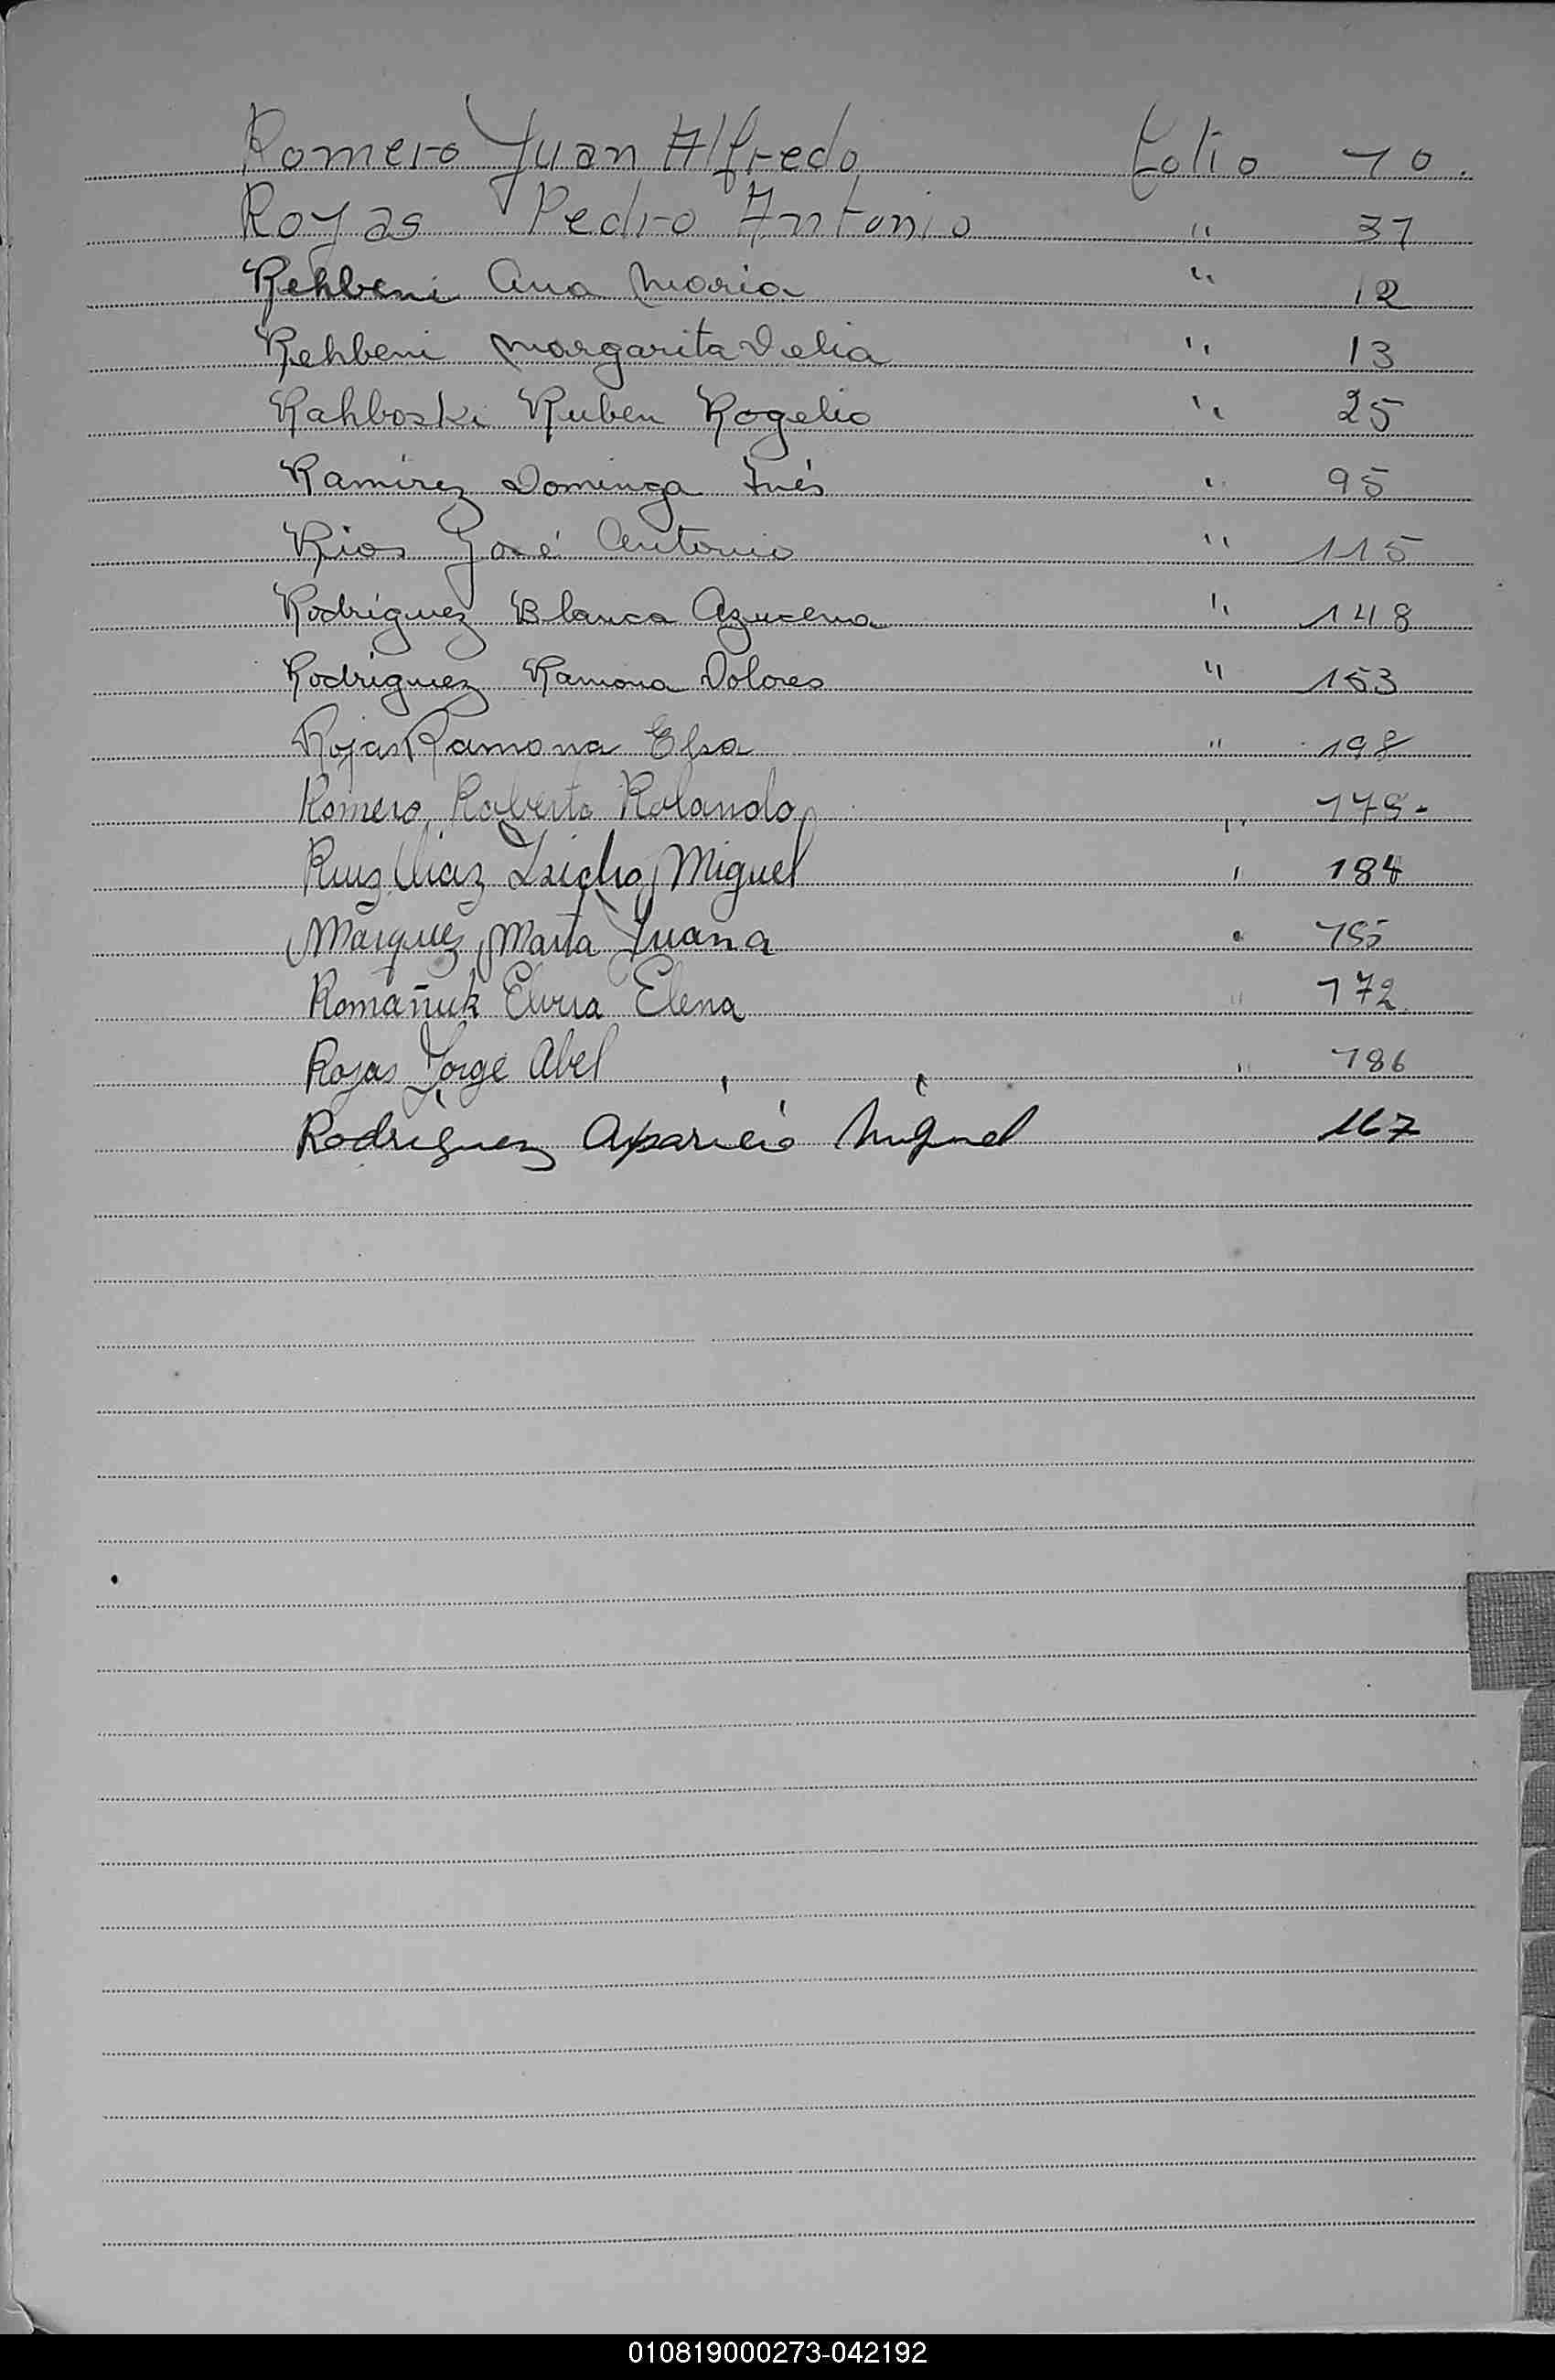 Romero Juan Alfredo Folio 10.
Rojas Pedro Antonio " 31
Rehbeni Ana Maria " 12
Rehbeni Margarita Delia " 13
Rahboski Ruben Rogelio " 25
Ramírez Dominga Inés " 95
Rios José Antonio " 115
Rodriguez Blanca Azucena " 148
Rodriguez Ramona Dolores " 153
Rojas Ramona Elsa " 198
Romero, Roberto Rolando, "
Ruiz Diaz Isidro Miguel " 184
Márquez, Marta Juana "
Romañuk Elvira Elena " 172.
Rojas Jorge Abel " 186
Rodriguez Aparicio Miguel 167
010819000273-042192